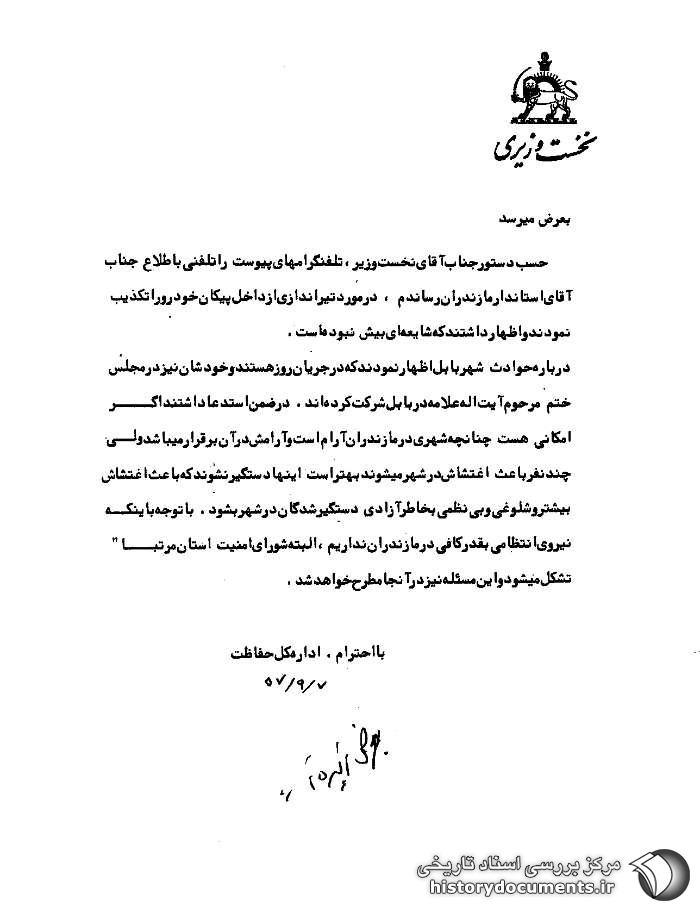 نخست وزیری
بعرض میرسد
حسب دستور جناب آقای نخست وزیر ، تلفنگرامهای پیوست را تلفنی باطلاع جناب
آقای استاندار مازندران رساندم ، در مورد تیراندازی از داخل پیکان خودرو را تکذیب
نمودند و اظهار داشتند که شایعه‌ای بیش نبوده است .
درباره حوادث شهر بابل اظهار نمودند که در جریان روز هستند و خودشان نیز در مجلس
ختم مرحوم آیت اله علامه در بابل شرکت کرده اند . در ضمن استدعا داشتند اگر
امکانی هست چنانچه شهری در مازندران آرام است و آرامش در آن برقرار میباشد ولی
چند نفر باعث اغتشاش در شهر میشوند بهتر است اینها دستگیر نشوند که باعث اغتشاش
بیشتر و شلوغی و بی نظمی بخاطر آزادی دستگیر شدگان در شهر بشود . با توجه باینکه
نیروی انتظامی بقدر کافی در مازندران نداریم ، البته شورای امنیت استان مرتبا "
تشکل میشود و این مسئله نیز در آنجا مطرح خواهد شد .
با احترام . اداره کل حفاظت
۵۷/۹/۷
مرکز بررسی اسناد تاریخی
historydocuments.ir